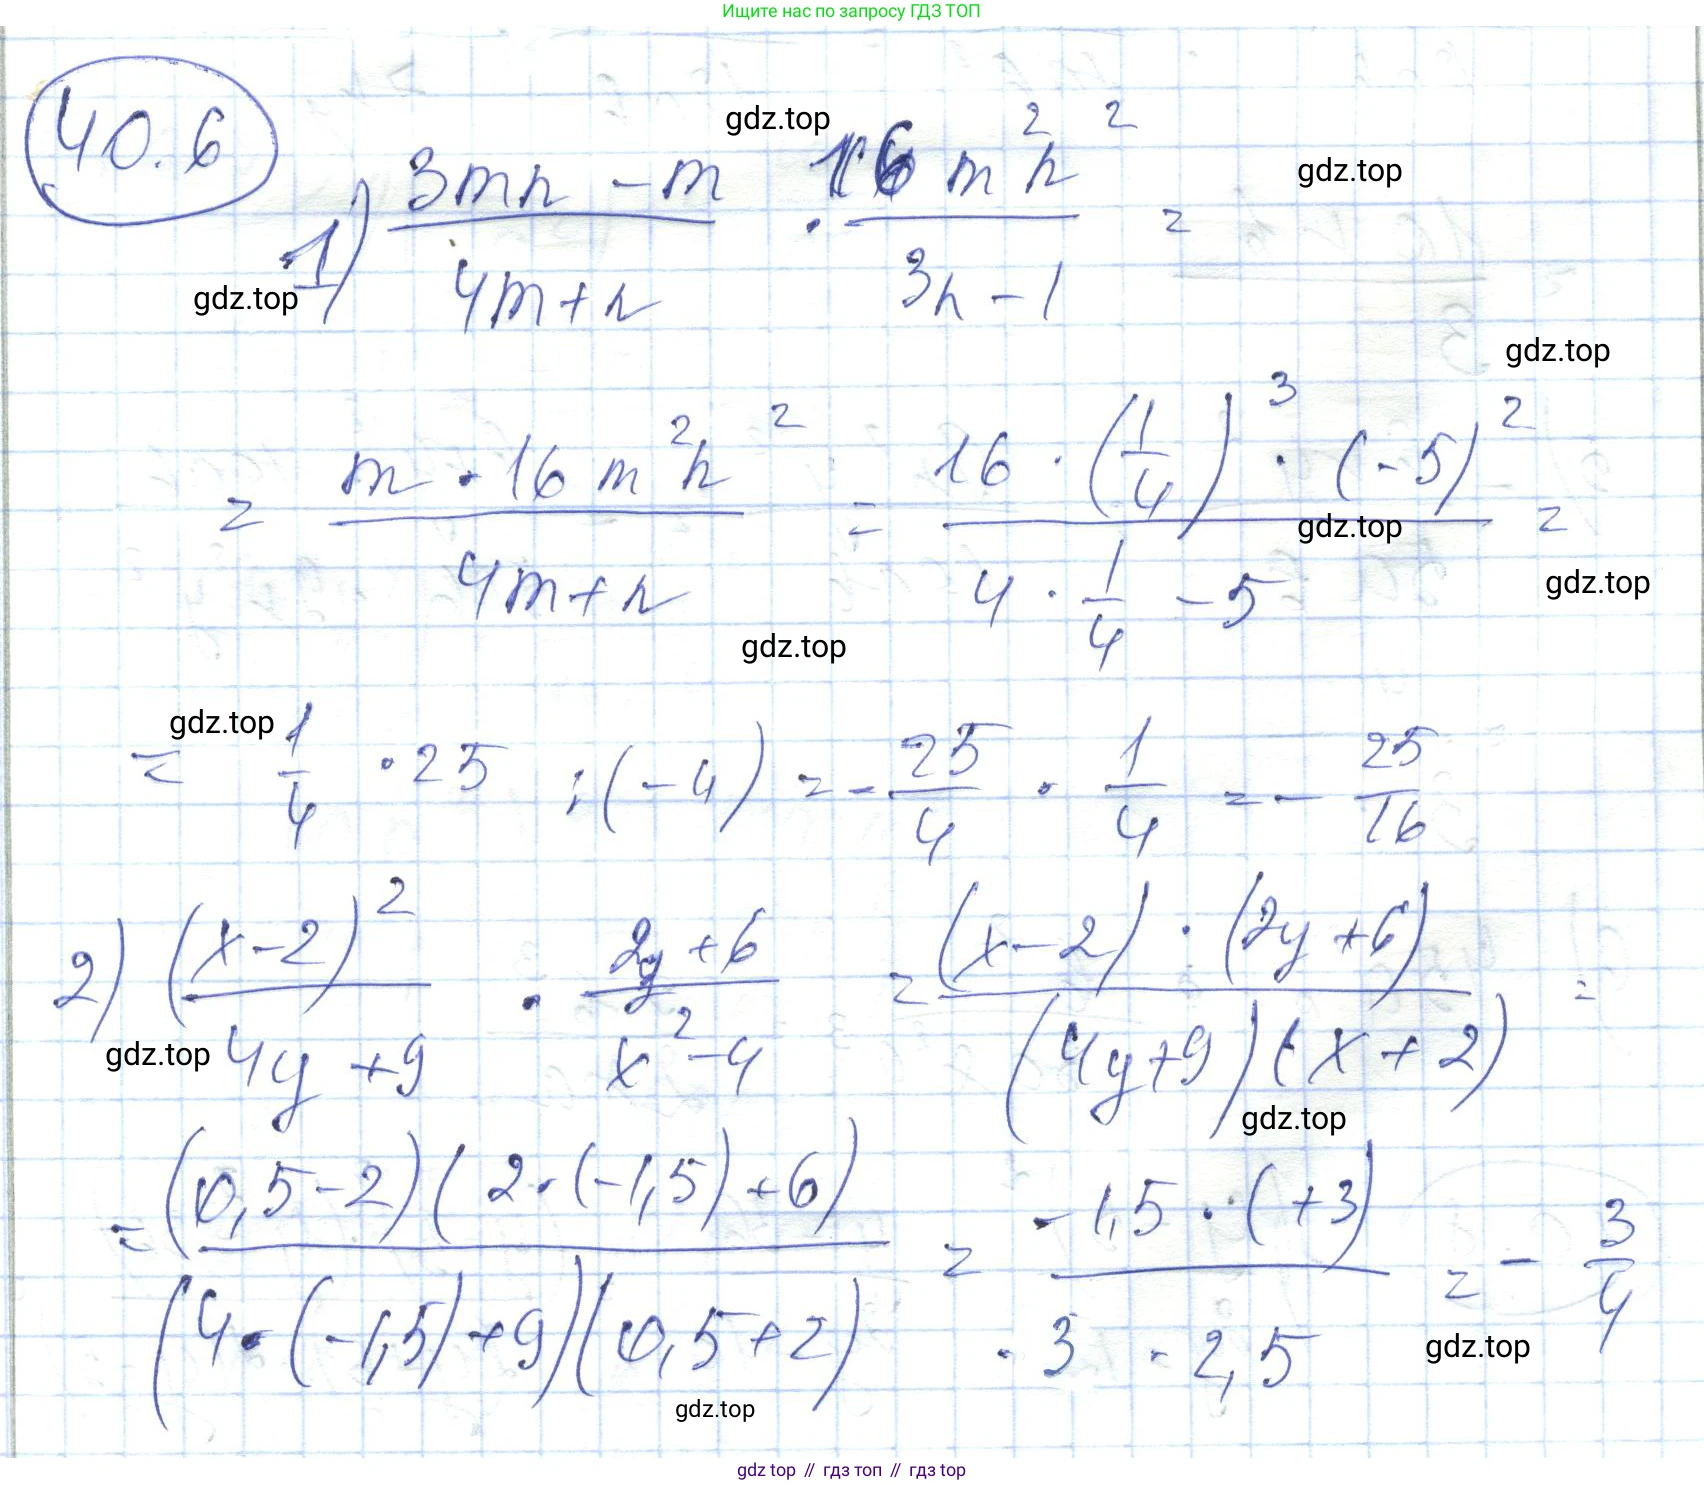 Ищите нас по запросу ГДЗ ТОП
40.6
gdz.top
1) (3mn - m)/(4m+n) · (16 m²n²)/(3n-1) =
gdz.top
gdz.top
gdz.top
= (m · 16 m²n²)/(4m+n) = (16 · (1/4)³ · (-5)²)/(4 · 1/4 - 5) =
gdz.top
gdz.top
gdz.top
gdz.top
= 1/4 · 25 : (-4) = - 25/4 · 1/4 = - 25/16
2) (x-2)²/(4y+9) · (2y+6)/(x²-4) = ((x-2) · (2y+6))/((4y+9)(x+2)) =
gdz.top
gdz.top
= ((0,5-2)(2·(-1,5)+6))/((4·(-1,5)+9)(0,5+2)) = (-1,5 · (+3))/(3 · 2,5) = - 3/4
gdz.top
gdz.top
gdz top // гдз топ // gdz top